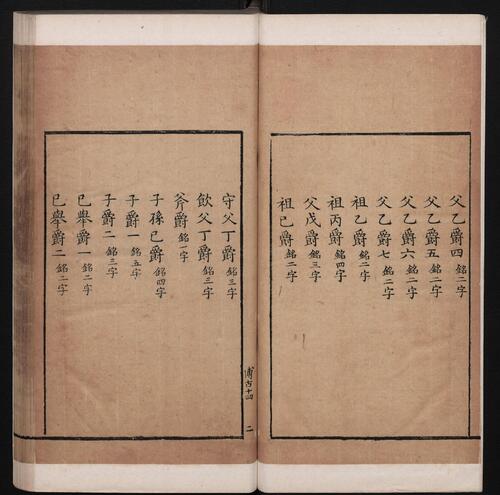 父乙爵四 銘二字
父乙爵五 銘二字
父乙爵六 銘二字
父乙爵七 銘二字
祖乙爵 銘二字
祖丙爵 銘四字
父戊爵 銘三字
祖己爵 銘二字
博古十四 二
守父丁爵 銘三字
飲父丁爵 銘三字
斧爵 銘一字
子孫己爵 銘四字
子爵一 銘五字
子爵二 銘三字
己舉爵一 銘二字
己舉爵二 銘二字